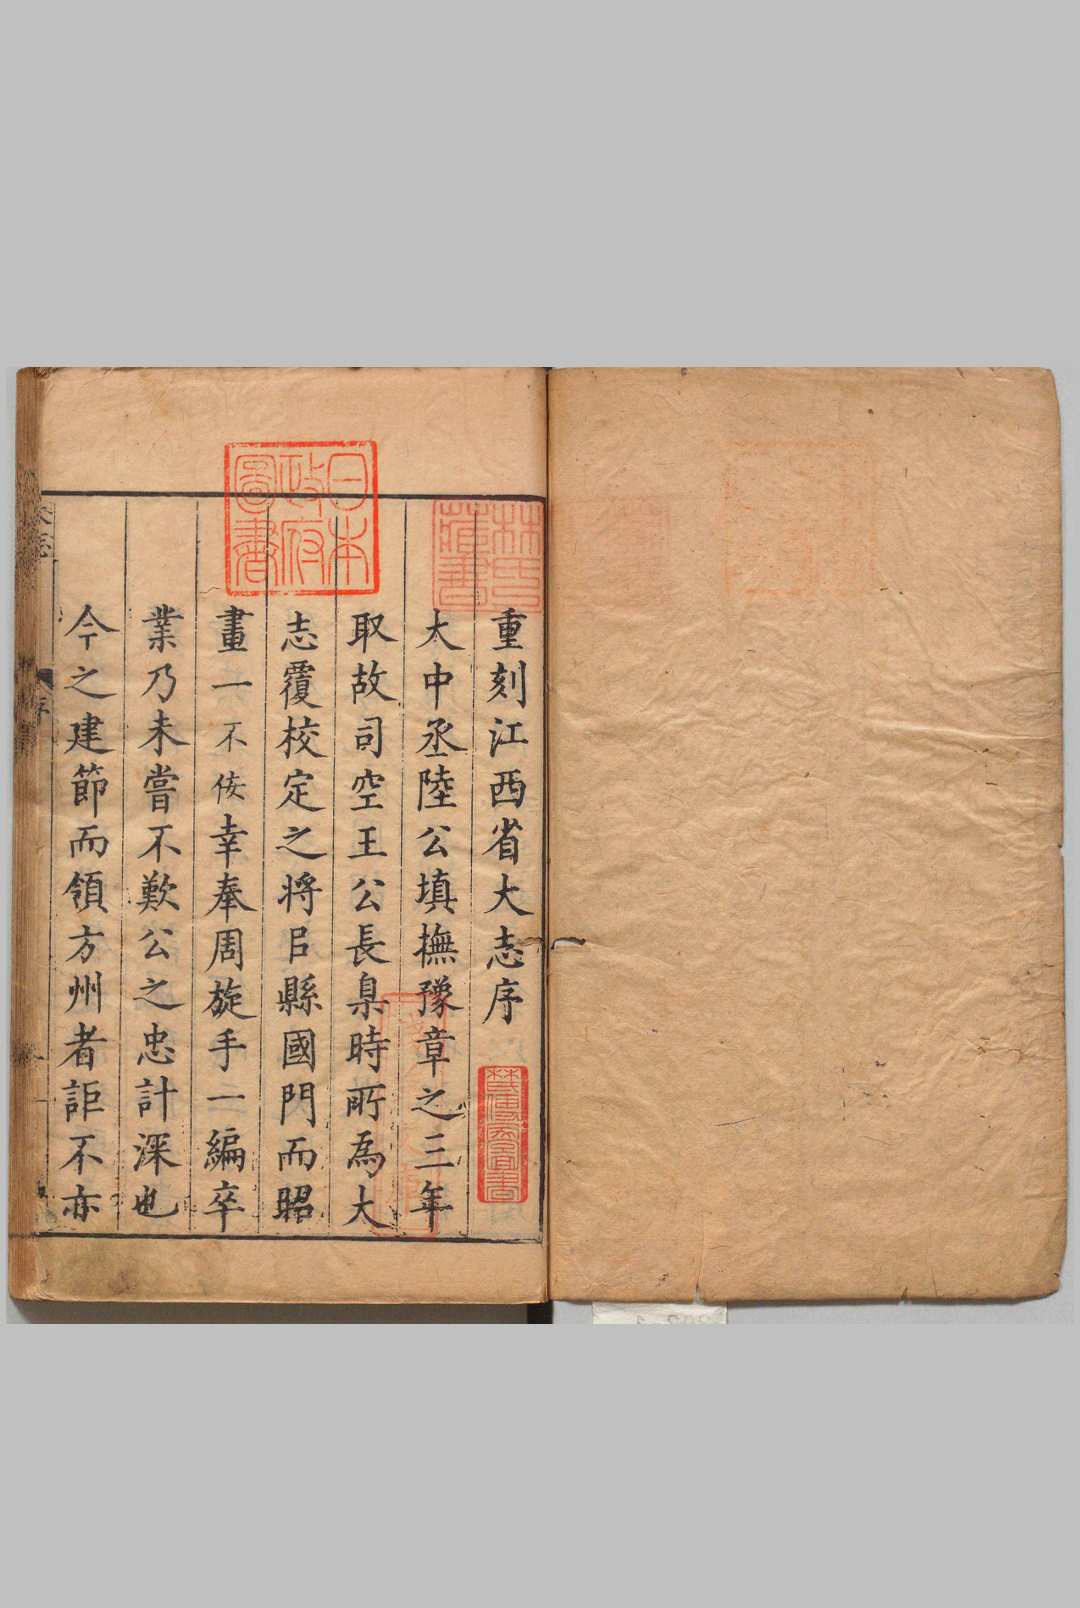 重刻江西省大志序
大中丞陸公填撫豫章之三年
取故司空王公長臬時所為大
志覆校定之將㠯縣國門而昭
畫一不佞幸奉周旋手一編卒
業乃未嘗不歎公之忠計深也
今之建節而領方州者詎不亦
日本
政府
圖書
林氏
藏書